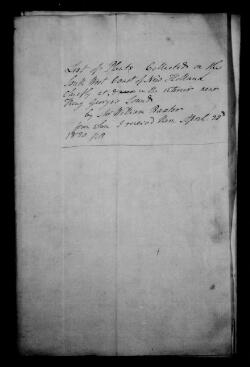 List of Plants Collected on the
South West Coast of New Holland
Chiefly at & in the interior near
King George's Sound
by Mr William Baxter
from whom I received them April 25th
1830